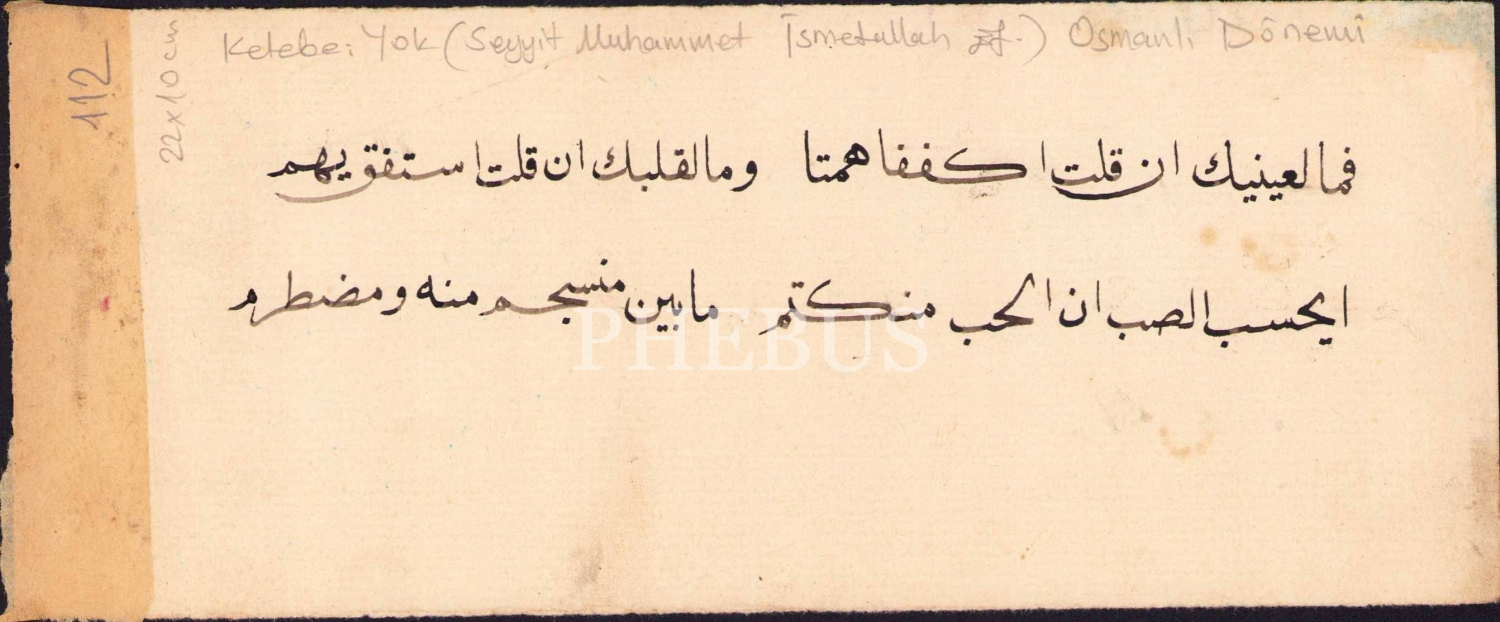 112
22x10 cm
Ketebe: Yok (Seyyit Muhammet İsmetullah ef.) Osmanlı Dönemi
فما لعينيك ان قلت اكففا همتا وما لقلبك ان قلت استفق يهم
ايحسب الصب ان الحب منكتم ما بين منسجم منه ومضطرم
PHEBUS